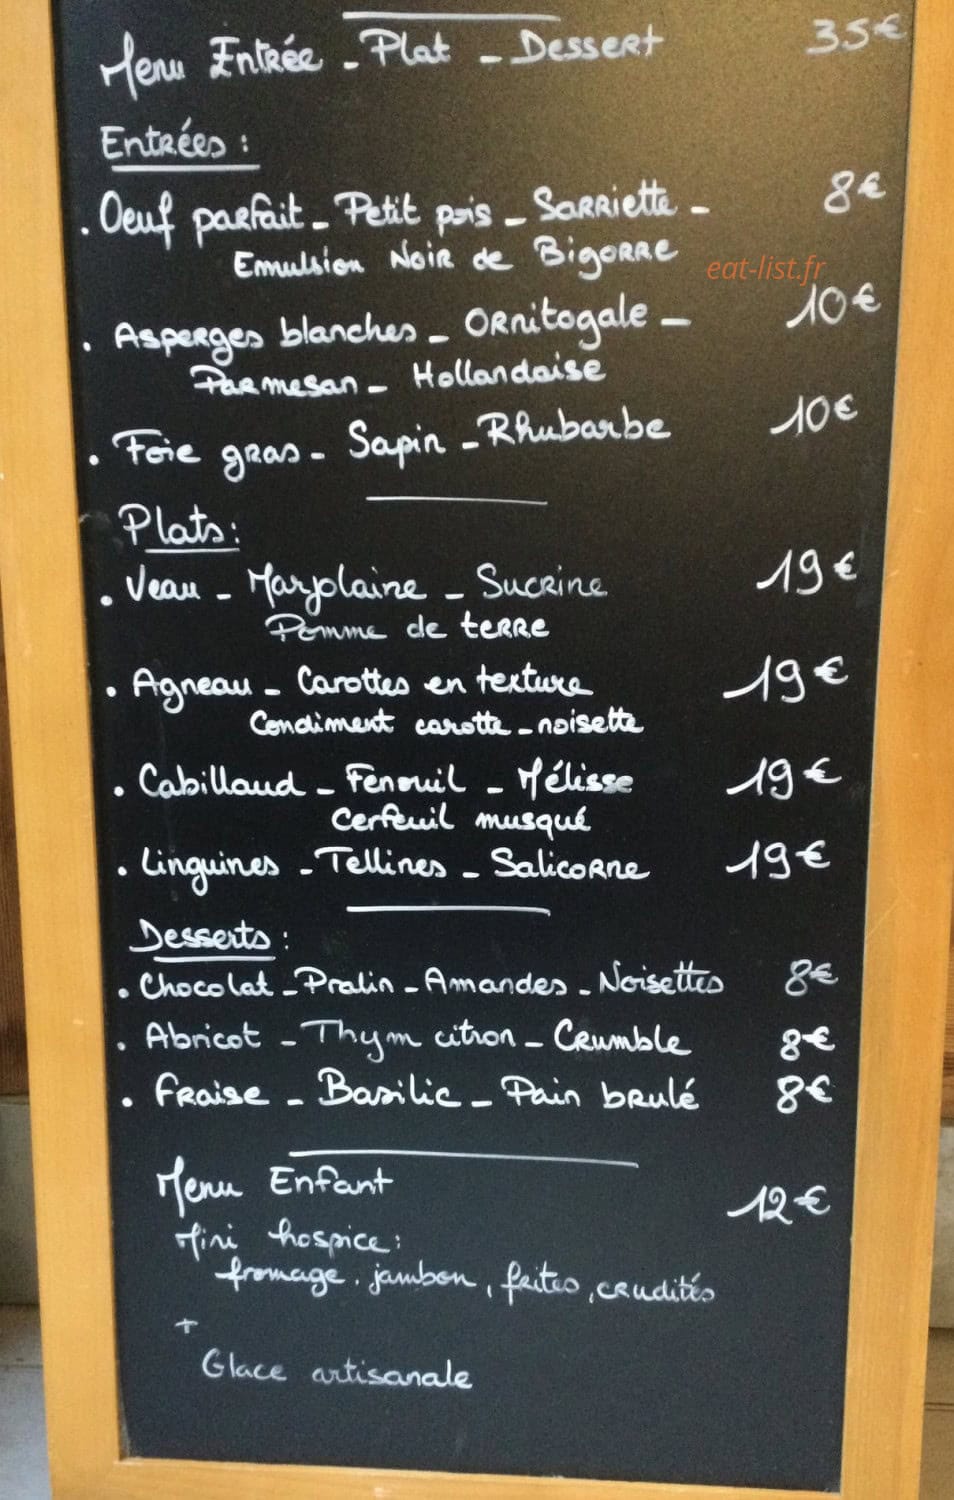 Menu Entrée - Plat - Dessert 35€
Entrées :
. Oeuf parfait - Petit pois - Sarriette - 8€
Emulsion Noir de Bigorre
eat-list.fr
. Asperges blanches - Ornitogale - 10€
Parmesan - Hollandaise
. Foie gras - Sapin - Rhubarbe 10€
Plats :
. Veau - Marjolaine - Sucrine 19€
Pomme de terre
. Agneau - Carottes en texture 19€
Condiment carotte - noisette
. Cabillaud - Fenouil - Mélisse 19€
Cerfeuil musqué
. Linguines - Tellines - Salicorne 19€
Desserts :
. Chocolat - Pralin - Amandes - Noisettes 8€
. Abricot - Thym citron - Crumble 8€
. Fraise - Basilic - Pain brulé 8€
Menu Enfant 12€
Mini hospice :
fromage, jambon, frites, crudités
+
Glace artisanale